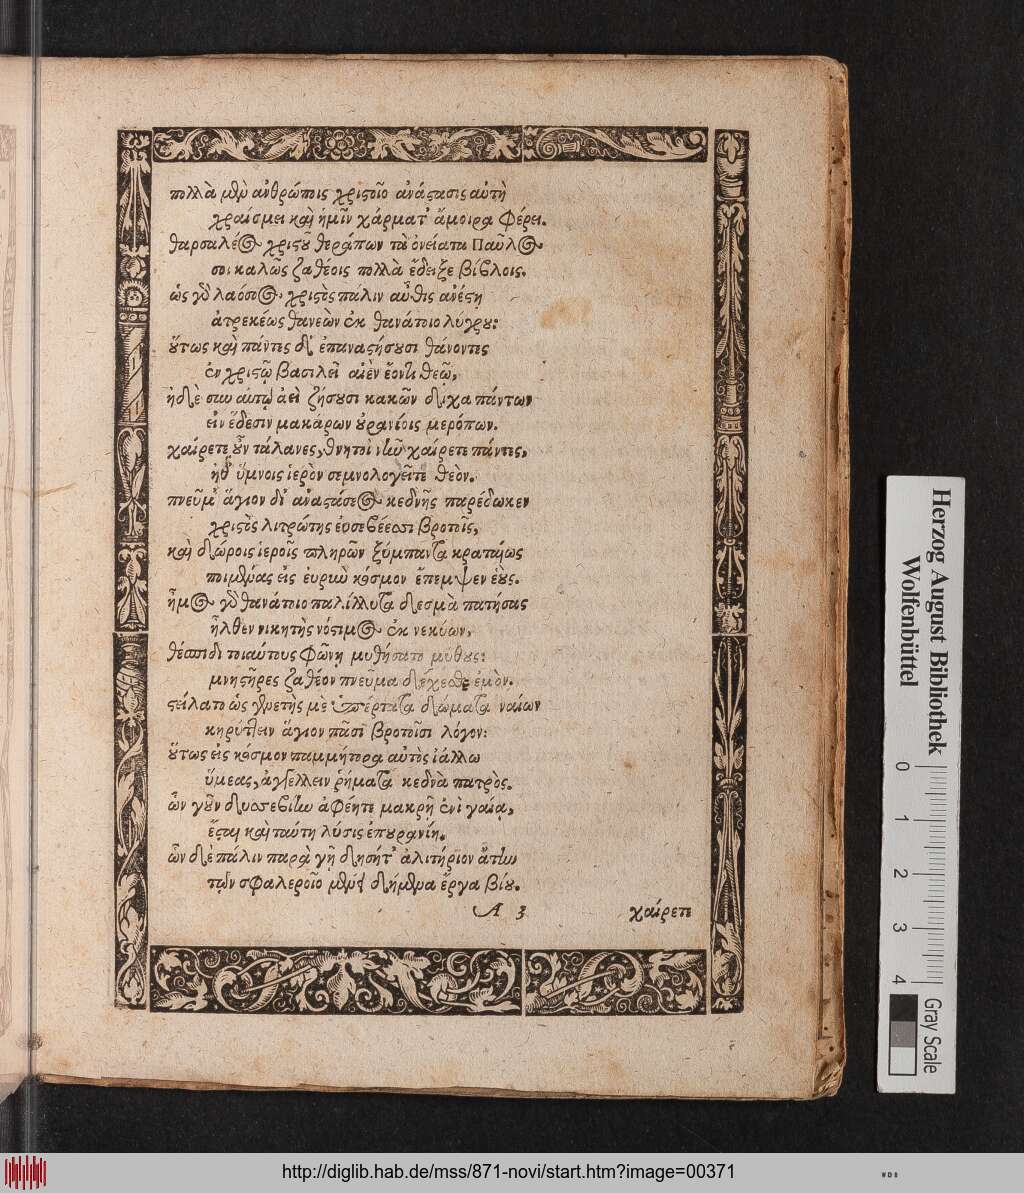 πολλὰ μὲν ἀνθρώποις χριςοῖο ἀνάςασις αὐτὴ
χραίσμει καὶ ἡμῖν χάρματ' ἄμοιρα φέρει.
θαρσαλέος χριςοῦ θεράπων τὰ ὀνείατα Παῦλος
σοι καλῶς ζαθέοις πολλὰ ἔδειξε βίβλοις.
ὡς γὸ λαόσοος χριςὸς πάλιν αὖθις ἀνέςη
ἀτρεκέως θανεὼν ἐκ θανάτοιο λυγροῦ:
οὕτως καὶ πάντες δὲ ἐπαναςήσουσι θάνοντες
ἐν χριςῷ βασιλεῖ αἰὲν ἔοντι θεῷ,
ἠδὲ συν αὐτῷ ἀεὶ ζήσουσι κακῶν δίχα πάντων
εἰν ἕδεσιν μακάρων οὐρανίοις μερόπων.
χαίρετε οὖν τάλανες, θνητοὶ νῦν χαίρετε πάντες,
ἠδ' ὕμνοις ἱερὸν σεμνολογεῖτε θεὸν.
πνεῦμ' ἅγιον δι' ἀναςάσεος κεδνῆς παρέδωκεν
χριςὸς λιτρώτης εὐσεβέεσσι βροτοῖς,
καὶ δώροις ἱεροῖς πληρῶν ξύμπαντα κραταιῶς
ποιμένας εἰς εὐρὺν κόσμον ἔπεμψεν ἑοὺς.
ἦμος γὸ θανάτοιο παλίλλυτα δεσμὰ πατήσας
ἦλθεν νικητὴς νόςιμος ἐκ νεκύων,
θέσπιδι τοιαύτους φῶνῃ μυθήσατο μύθους:
μνηςῆρες ζαθέον πνεῦμα δέχεσθε ἐμὸν.
ςείλατο ὡς γενετὴς μὲ ὑπέρτατα δώματα ναίων
κηρύττειν ἅγιον πᾶσι βροτοῖσι λόγον:
οὕτως εἰς κόσμον παμμήτορα αὐτὸς ἰάλλω
ὕμεας, ἀγγέλλειν ῥήματα κεδνὰ πατρὸς.
ὧν γοῦν δυσσεβίην ἀφέητε μακρῇ ἐνὶ γαίᾳ,
ἔςαι καὶ ταύτη λύσις ἐπουρανίη.
ὧν δὲ πάλιν παρὰ γῇ δησήτ' ἀλιτήριον ἄτην,
τῶν σφαλεροῖο μένει δήμενα ἔργα βίου.
A 3 χαίρετε
Herzog August Bibliothek
Wolfenbüttel
0 1 2 3 4
Gray Scale
http://diglib.hab.de/mss/871-novi/start.htm?image=00371